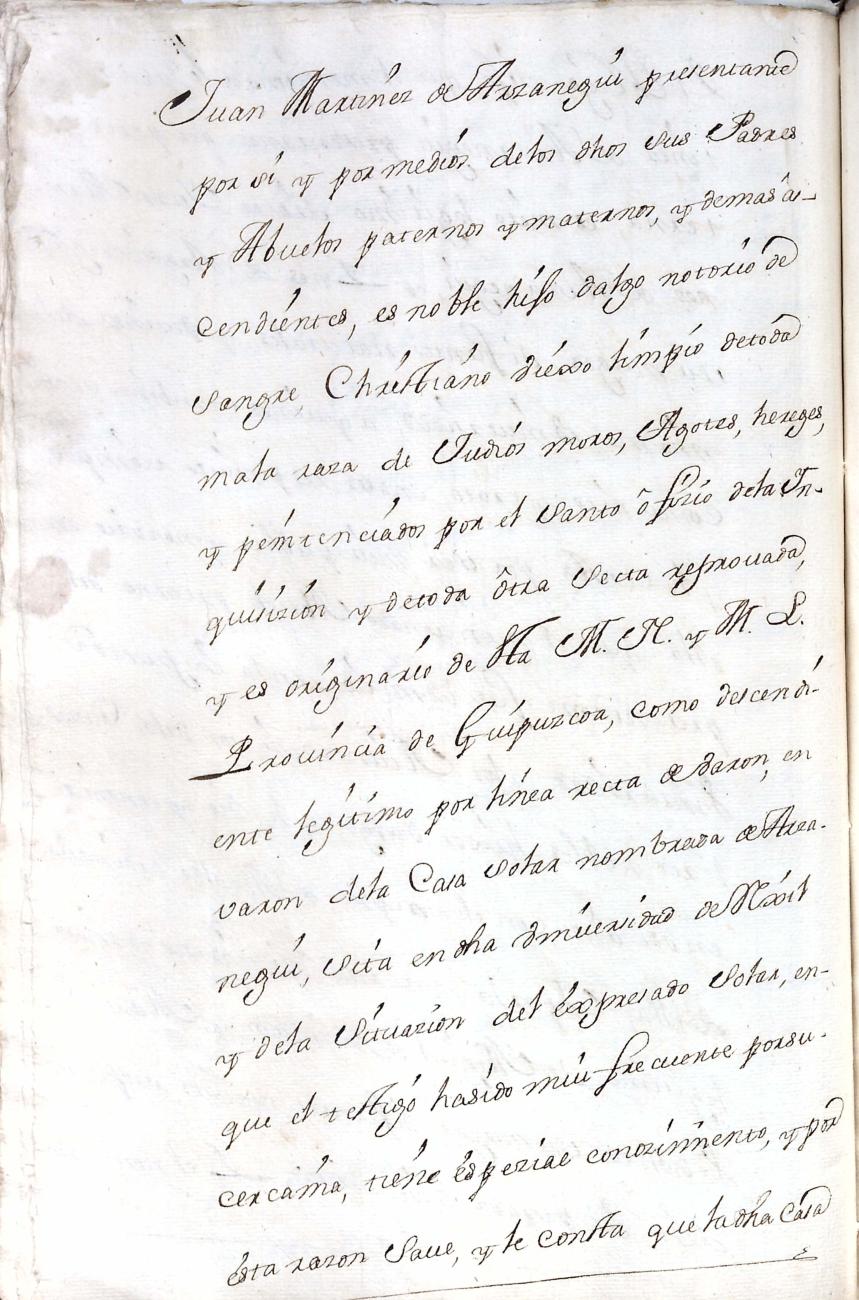 Juan Martinez de Arzanegui presentante
por si y por medios delos dhos sus Padres
y Abuelos paternos y maternos, y demas âs-
cendientes, es noble hijo dalgo notorio de
sangre, Christiano viexo limpio detoda
mala raza de Judios moros, Agotes, hereges,
y penitenciados por el Santo ôfizio dela In-
quisizion y detoda ôtra secta reprouada,
y es originario de êsta M. N. y M. L.
Provincia de Guipuzcoa, como descendi-
ente legitimo por linea recta de varon, en
varon dela Casa Solar nombrada de Arza-
negui, sita en dha Universidad de
y dela Situazion del êxpresado Solar, en-
que el testigo hasido mui frecuente porsu-
cercania, tiene êspezial conozimiento, y por
êsta razon Save, y le consta que la dha Casa